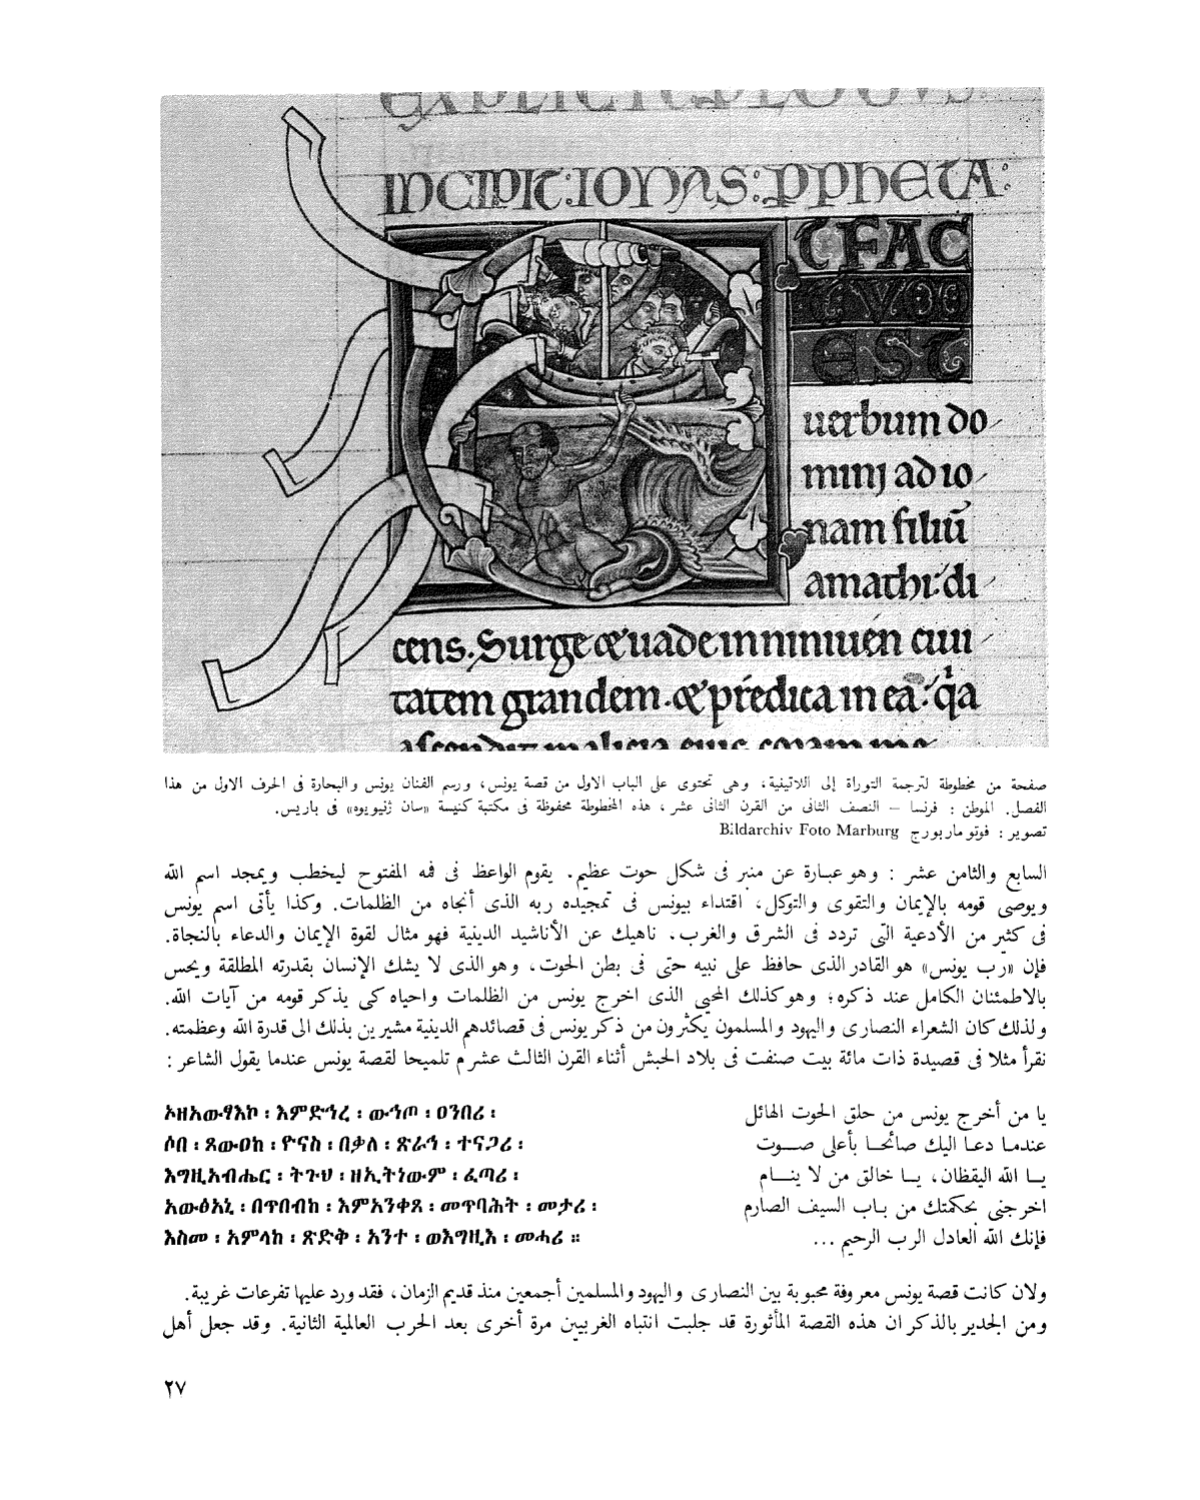 INCIPIT: IONAS: PPHETA:
ET FAC
TVM
EST
uerbum do
mini ad io
nam filiū
amathi di
cens. Surge & uade in niniuen ciui
tatem grandem. & predica in ea: qa
ascendit malicia eius coram me
صفحة من مخطوطة لترجمة التوراة إلى اللاتينية، وهى تحتوى على الباب الاول من قصة يونس، ورسم الفنان يونس والبحارة فى الحرف الاول من هذا
الفصل. الموطن : فرنسا – النصف الثانى من القرن الثانى عشر، هذه المخطوطة محفوظة فى مكتبة كنيسة «سان ژنيويوه» فى باريس.
تصوير : فوتو ماربورج Bildarchiv Foto Marburg
السابع والثامن عشر : وهو عبارة عن منبر فى شكل حوت عظيم. يقوم الواعظ فى فمه المفتوح ليخطب ويمجد اسم الله
ويوصى قومه بالإيمان والتقوى والتوكل، اقتداء بيونس فى تمجيده ربه الذى أنجاه من الظلمات. وكذا يأتى اسم يونس
فى كثير من الأدعية التى تردد فى الشرق والغرب، ناهيك عن الأناشيد الدينية فهو مثال لقوة الإيمان والدعاء بالنجاة.
فإن «رب يونس» هو القادر الذى حافظ على نبيه حتى فى بطن الحوت، وهو الذى لا يشك الإنسان بقدرته المطلقة ويحس
بالاطمئنان الكامل عند ذكره؛ وهو كذلك المحيى الذى اخرج يونس من الظلمات واحياه كى يذكر قومه من آيات الله.
ولذلك كان الشعراء النصارى واليهود والمسلمون يكثرون من ذكر يونس فى قصائدهم الدينية مشيرين بذلك الى قدرة الله وعظمته.
نقرأ مثلا فى قصيدة ذات مائة بيت صنفت فى بلاد الحبش أثناء القرن الثالث عشر م تلميحا لقصة يونس عندما يقول الشاعر :
يا من أخرج يونس من حلق الحوت الهائل
عندما دعا اليك صائحا بأعلى صوت
يا الله اليقظان، يا خالق من لا ينام
اخرجنى بحكمتك من باب السيف الصارم
فإنك الله العادل الرب الرحيم ...
ኦዘአውፃእኮ ፡ እምድኅረ ፡ ውኅጦ ፡ ዐንበሪ ፡
ሶበ ፡ ጸውዐከ ፡ ዮናስ ፡ በቃለ ፡ ጽራኅ ፡ ተናጋሪ ፡
እግዚአብሔር ፡ ትጉህ ፡ ዘኢትነውም ፡ ፈጣሪ ፡
አውፅአኒ ፡ በጥበብከ ፡ እምአንቀጸ ፡ መጥባሕት ፡ መታሪ ፡
እስመ ፡ አምላክ ፡ ጻድቅ ፡ አንተ ፡ ወእግዚእ ፡ መሓሪ ።
ولان كانت قصة يونس معروفة محبوبة بين النصارى واليهود والمسلمين أجمعين منذ قديم الزمان، فقد ورد عليها تفرعات غريبة.
ومن الجدير بالذكر ان هذه القصة المأثورة قد جلبت انتباه الغربيين مرة أخرى بعد الحرب العالمية الثانية. وقد جعل أهل
٢٧